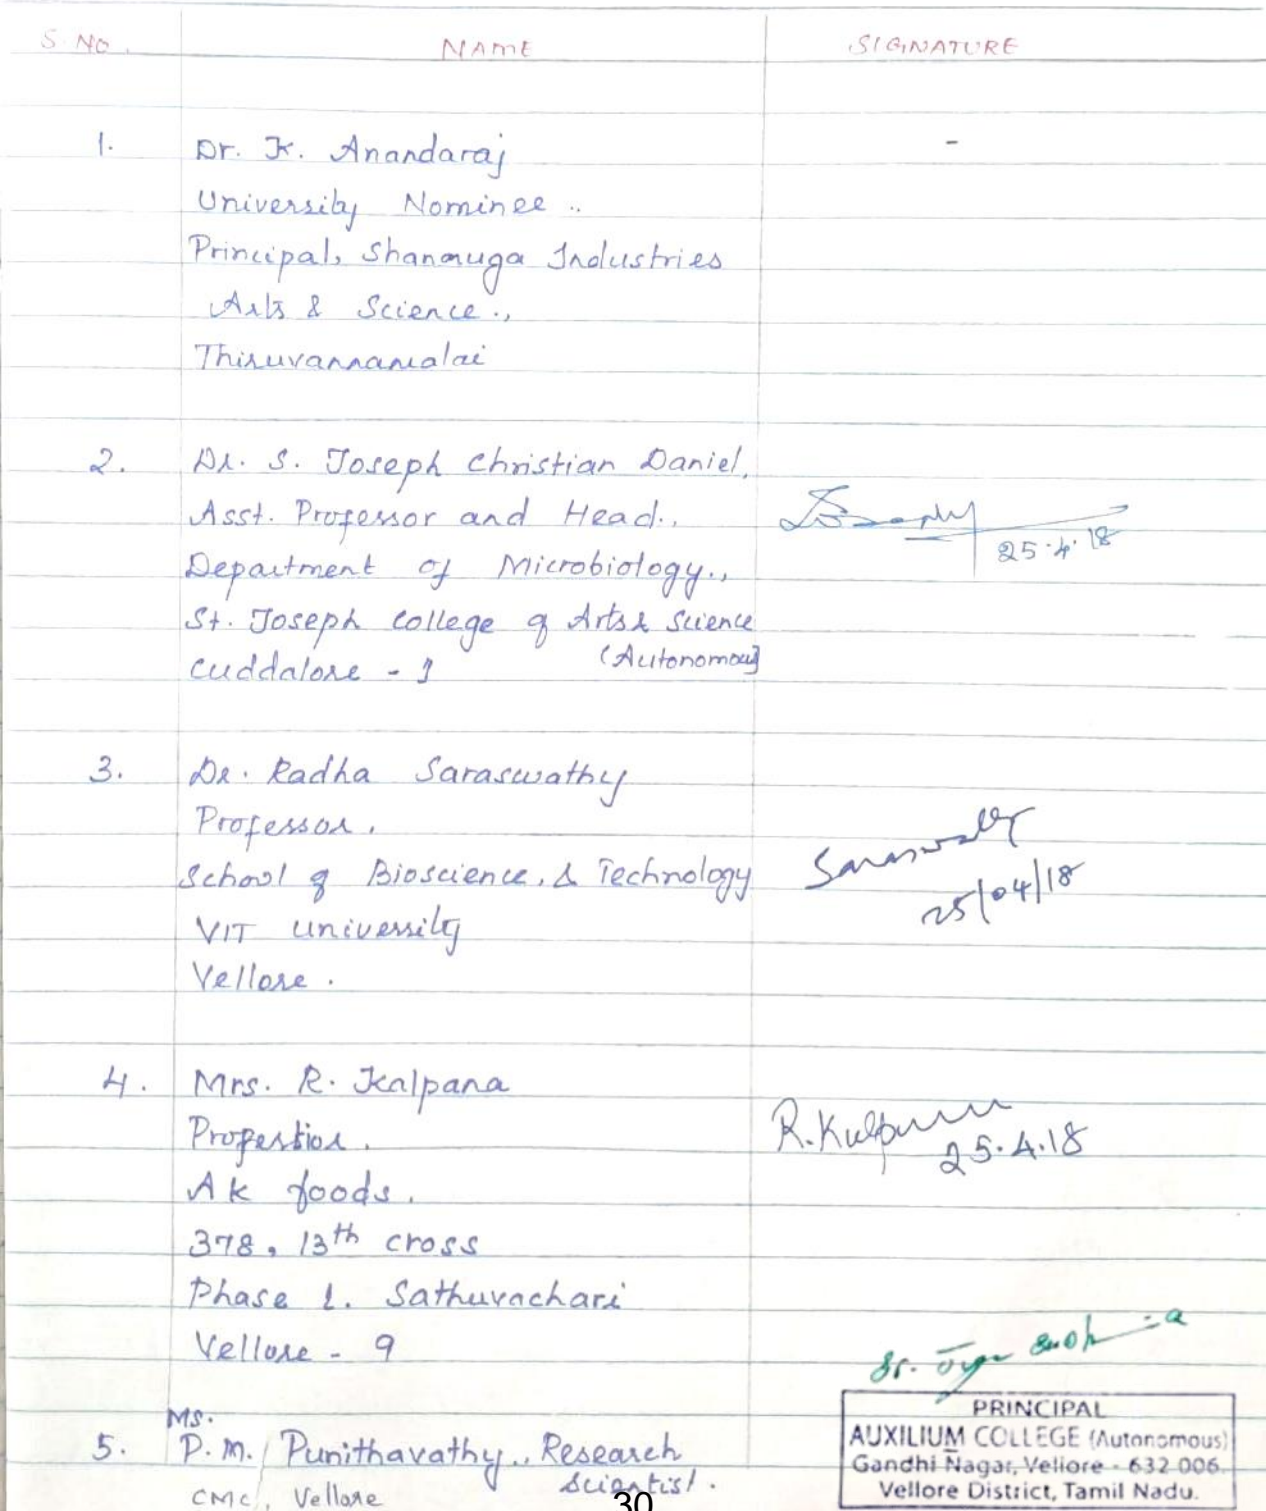 S. NO. NAME SIGNATURE
1. Dr. K. Anandaraj -
University Nominee ..
Principal, Shanmuga Industries
Arts & Science.,
Thiruvannamalai
2. Dr. S. Joseph Christian Daniel,
Asst. Professor and Head.,
25.4.18
Department of Microbiology.,
St. Joseph college of Arts & Science
(Autonomous)
Cuddalore - 1
3. Dr. Radha Saraswathy
Professor,
School of Bioscience, & Technology Saraswathy
25/04/18
VIT University
Vellore.
4. Mrs. R. Kalpana
Propertior, R. Kalpana
25.4.18
AK foods,
378, 13th cross
Phase 1. Sathuvachari
Vellore - 9
Ms.
5. P.M. Punithavathy., Research
Scientist.
CMC, Vellore
PRINCIPAL
AUXILIUM COLLEGE (Autonomous)
Gandhi Nagar, Vellore - 632 006.
Vellore District, Tamil Nadu.
30